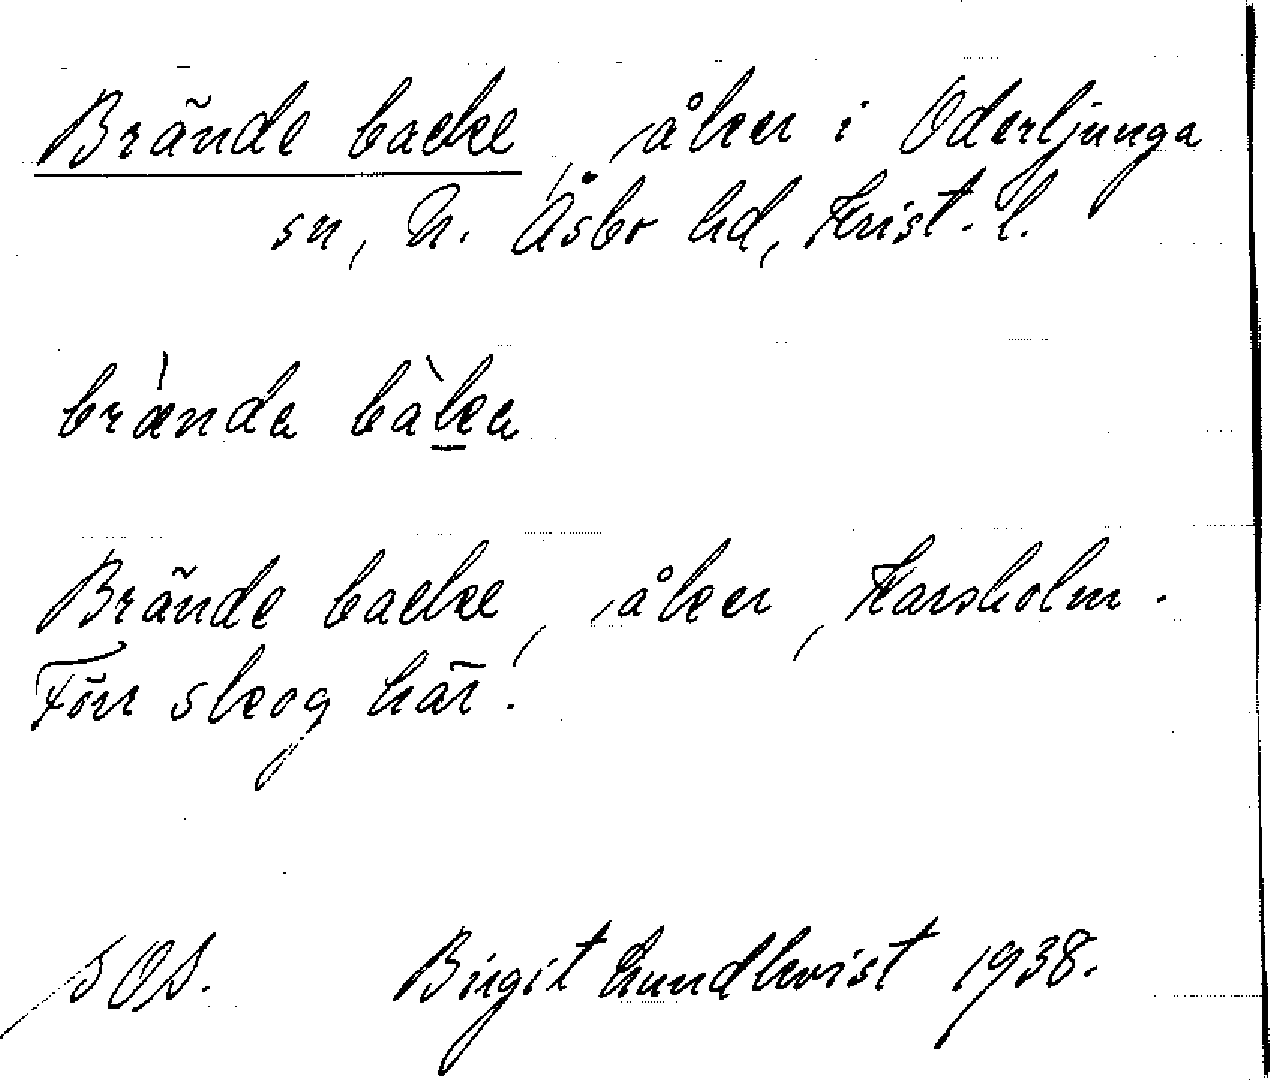 Brände backe, åker i Oderljunga
sn, N. Åsbo hd, Krist. l.
brànda bàka
Brände backe, åker, Karsholm.
Förr skog här.
SOS. Birgit Lundkvist 1938.